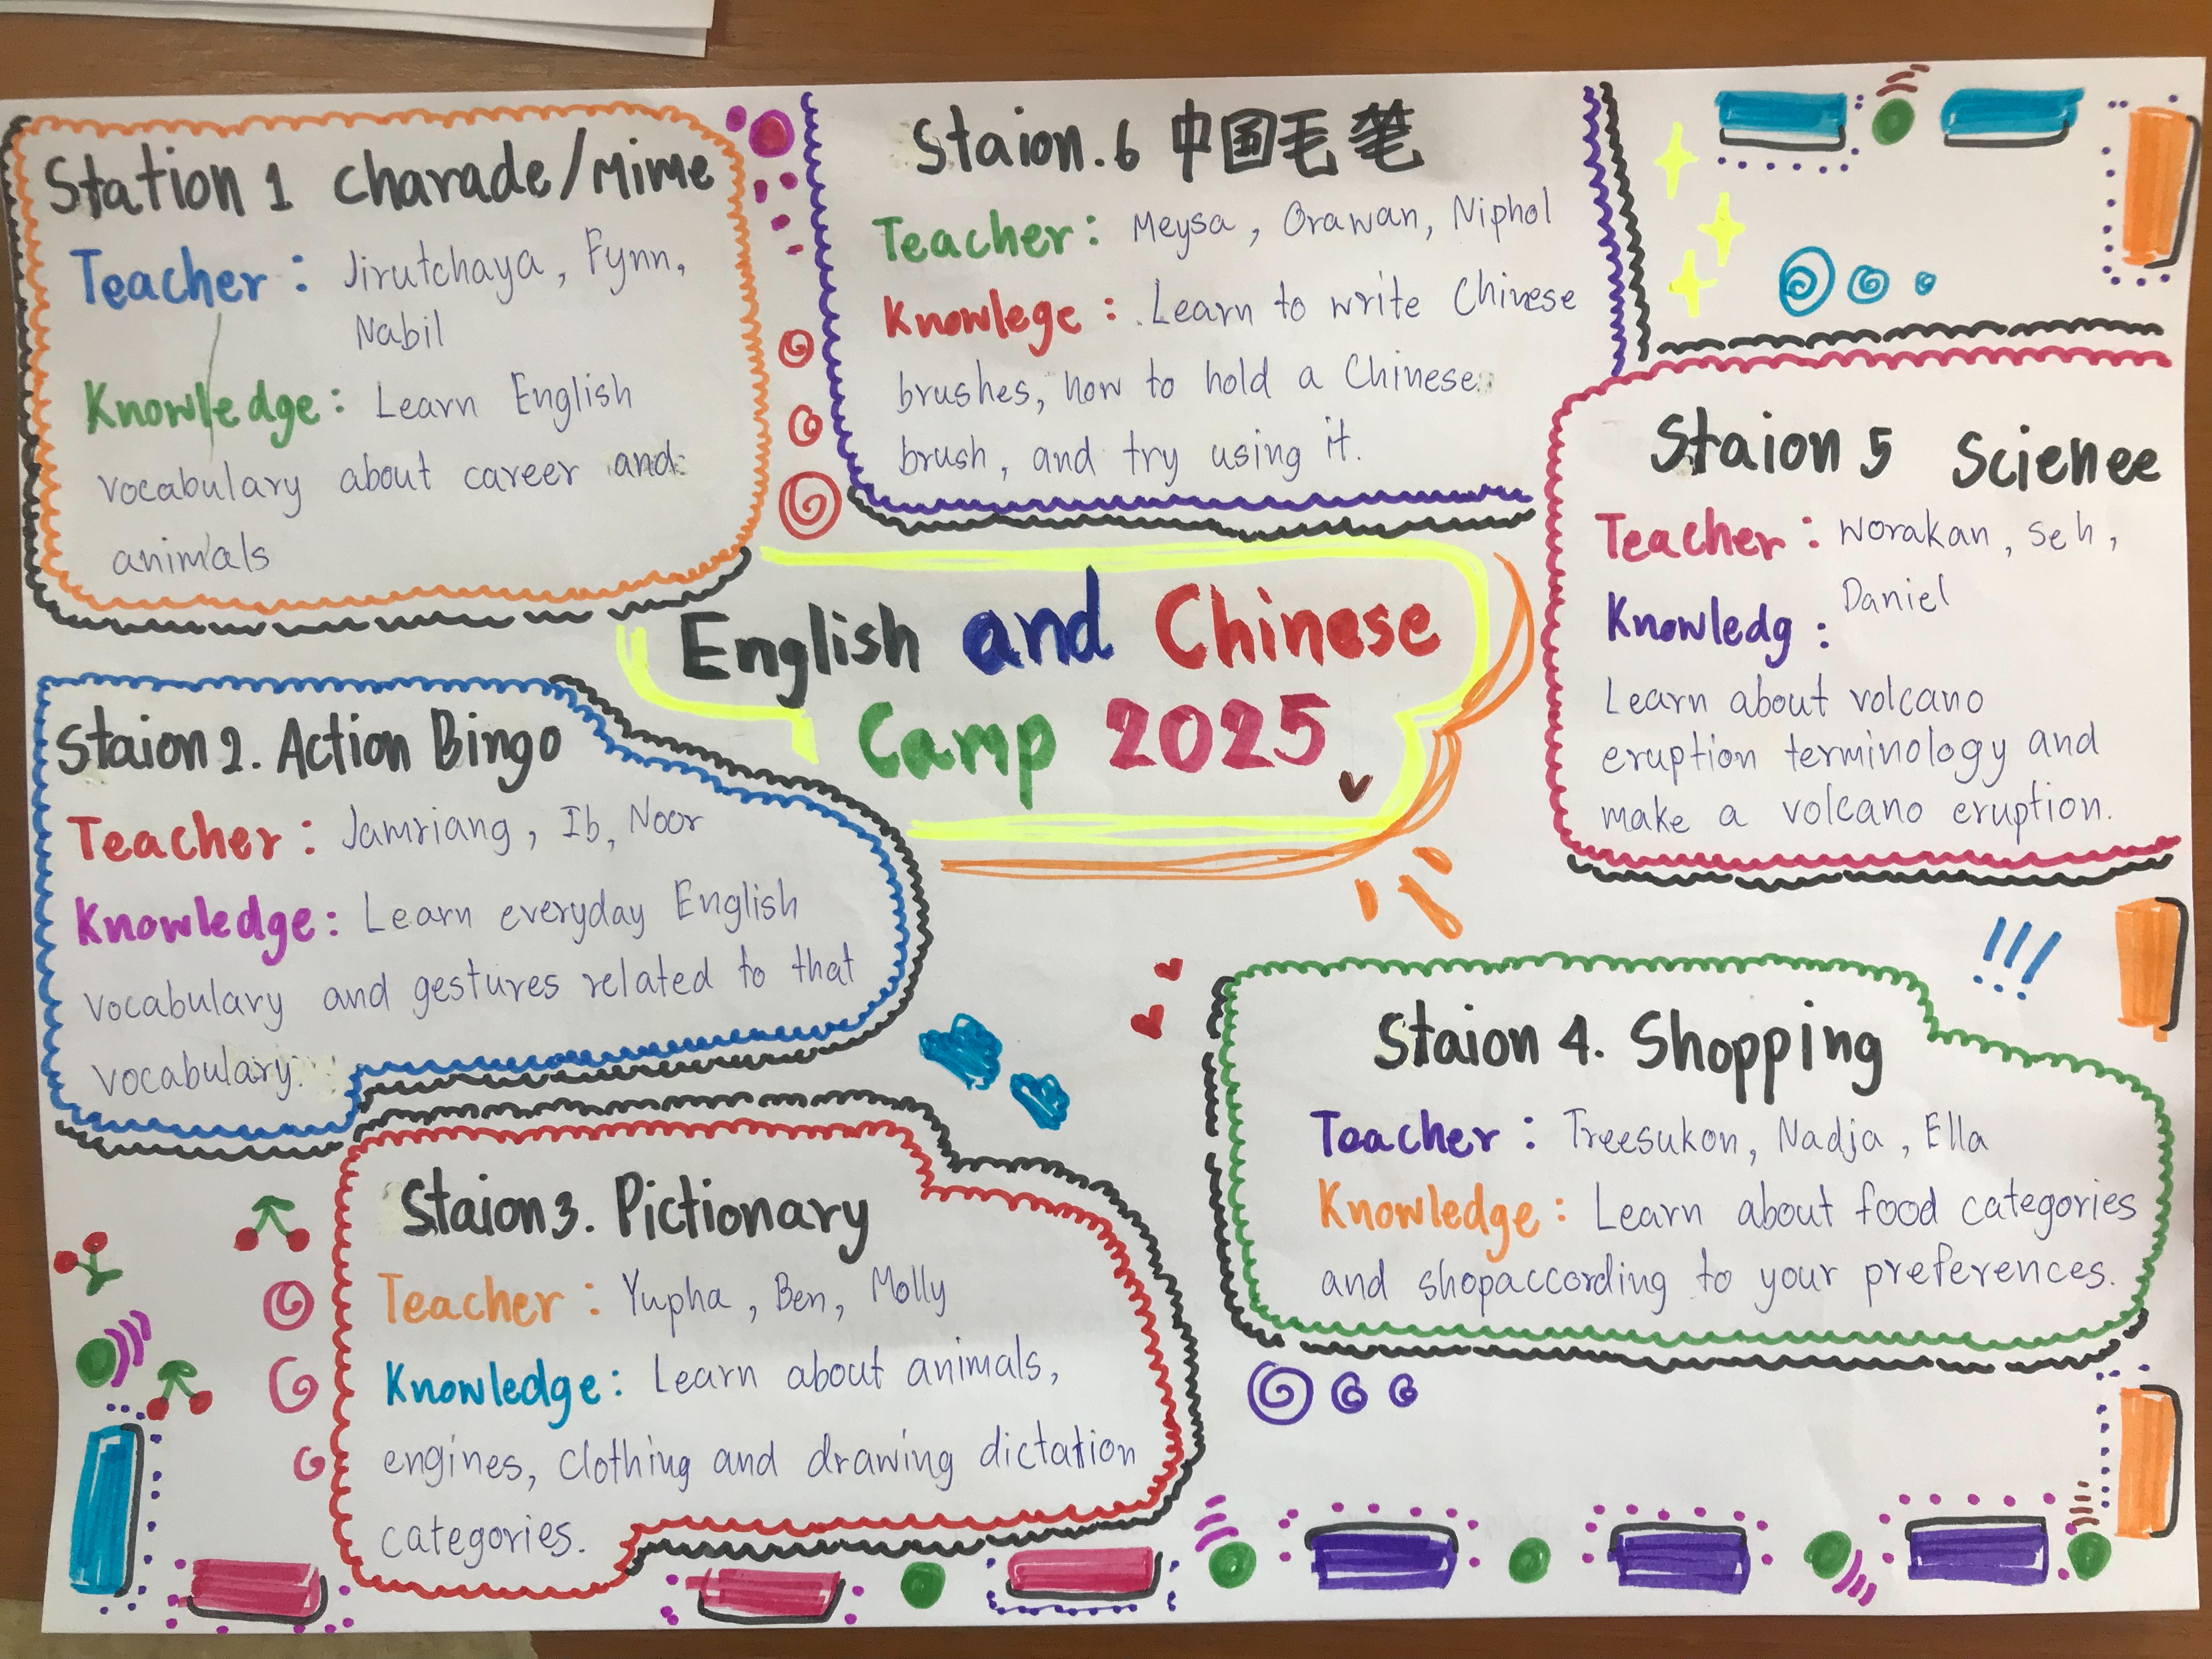 English and Chinese
Camp 2025
Station 1 Charade/Mime
Teacher: Jirutchaya, Fynn,
Nabil
Knowledge: Learn English
vocabulary about career and
animals
Staion 2. Action Bingo
Teacher: Jamriang, Ib, Noor
Knowledge: Learn everyday English
vocabulary and gestures related to that
vocabulary.
Staion 3. Pictionary
Teacher: Yupha, Ben, Molly
Knowledge: Learn about animals,
engines, clothing and drawing dictation
categories.
Staion 4. Shopping
Teacher: Treesukon, Nadja, Ella
Knowledge: Learn about food categories
and shopaccording to your preferences.
!!!
Staion 5 Scienee
Teacher: Worakan, Seh,
Daniel
Knowledg:
Learn about volcano
eruption terminology and
make a volcano eruption.
Staion.6 中国毛笔
Teacher: Meysa, Orawan, Niphol
Knowlege: Learn to write Chinese
brushes, how to hold a Chinese
brush, and try using it.